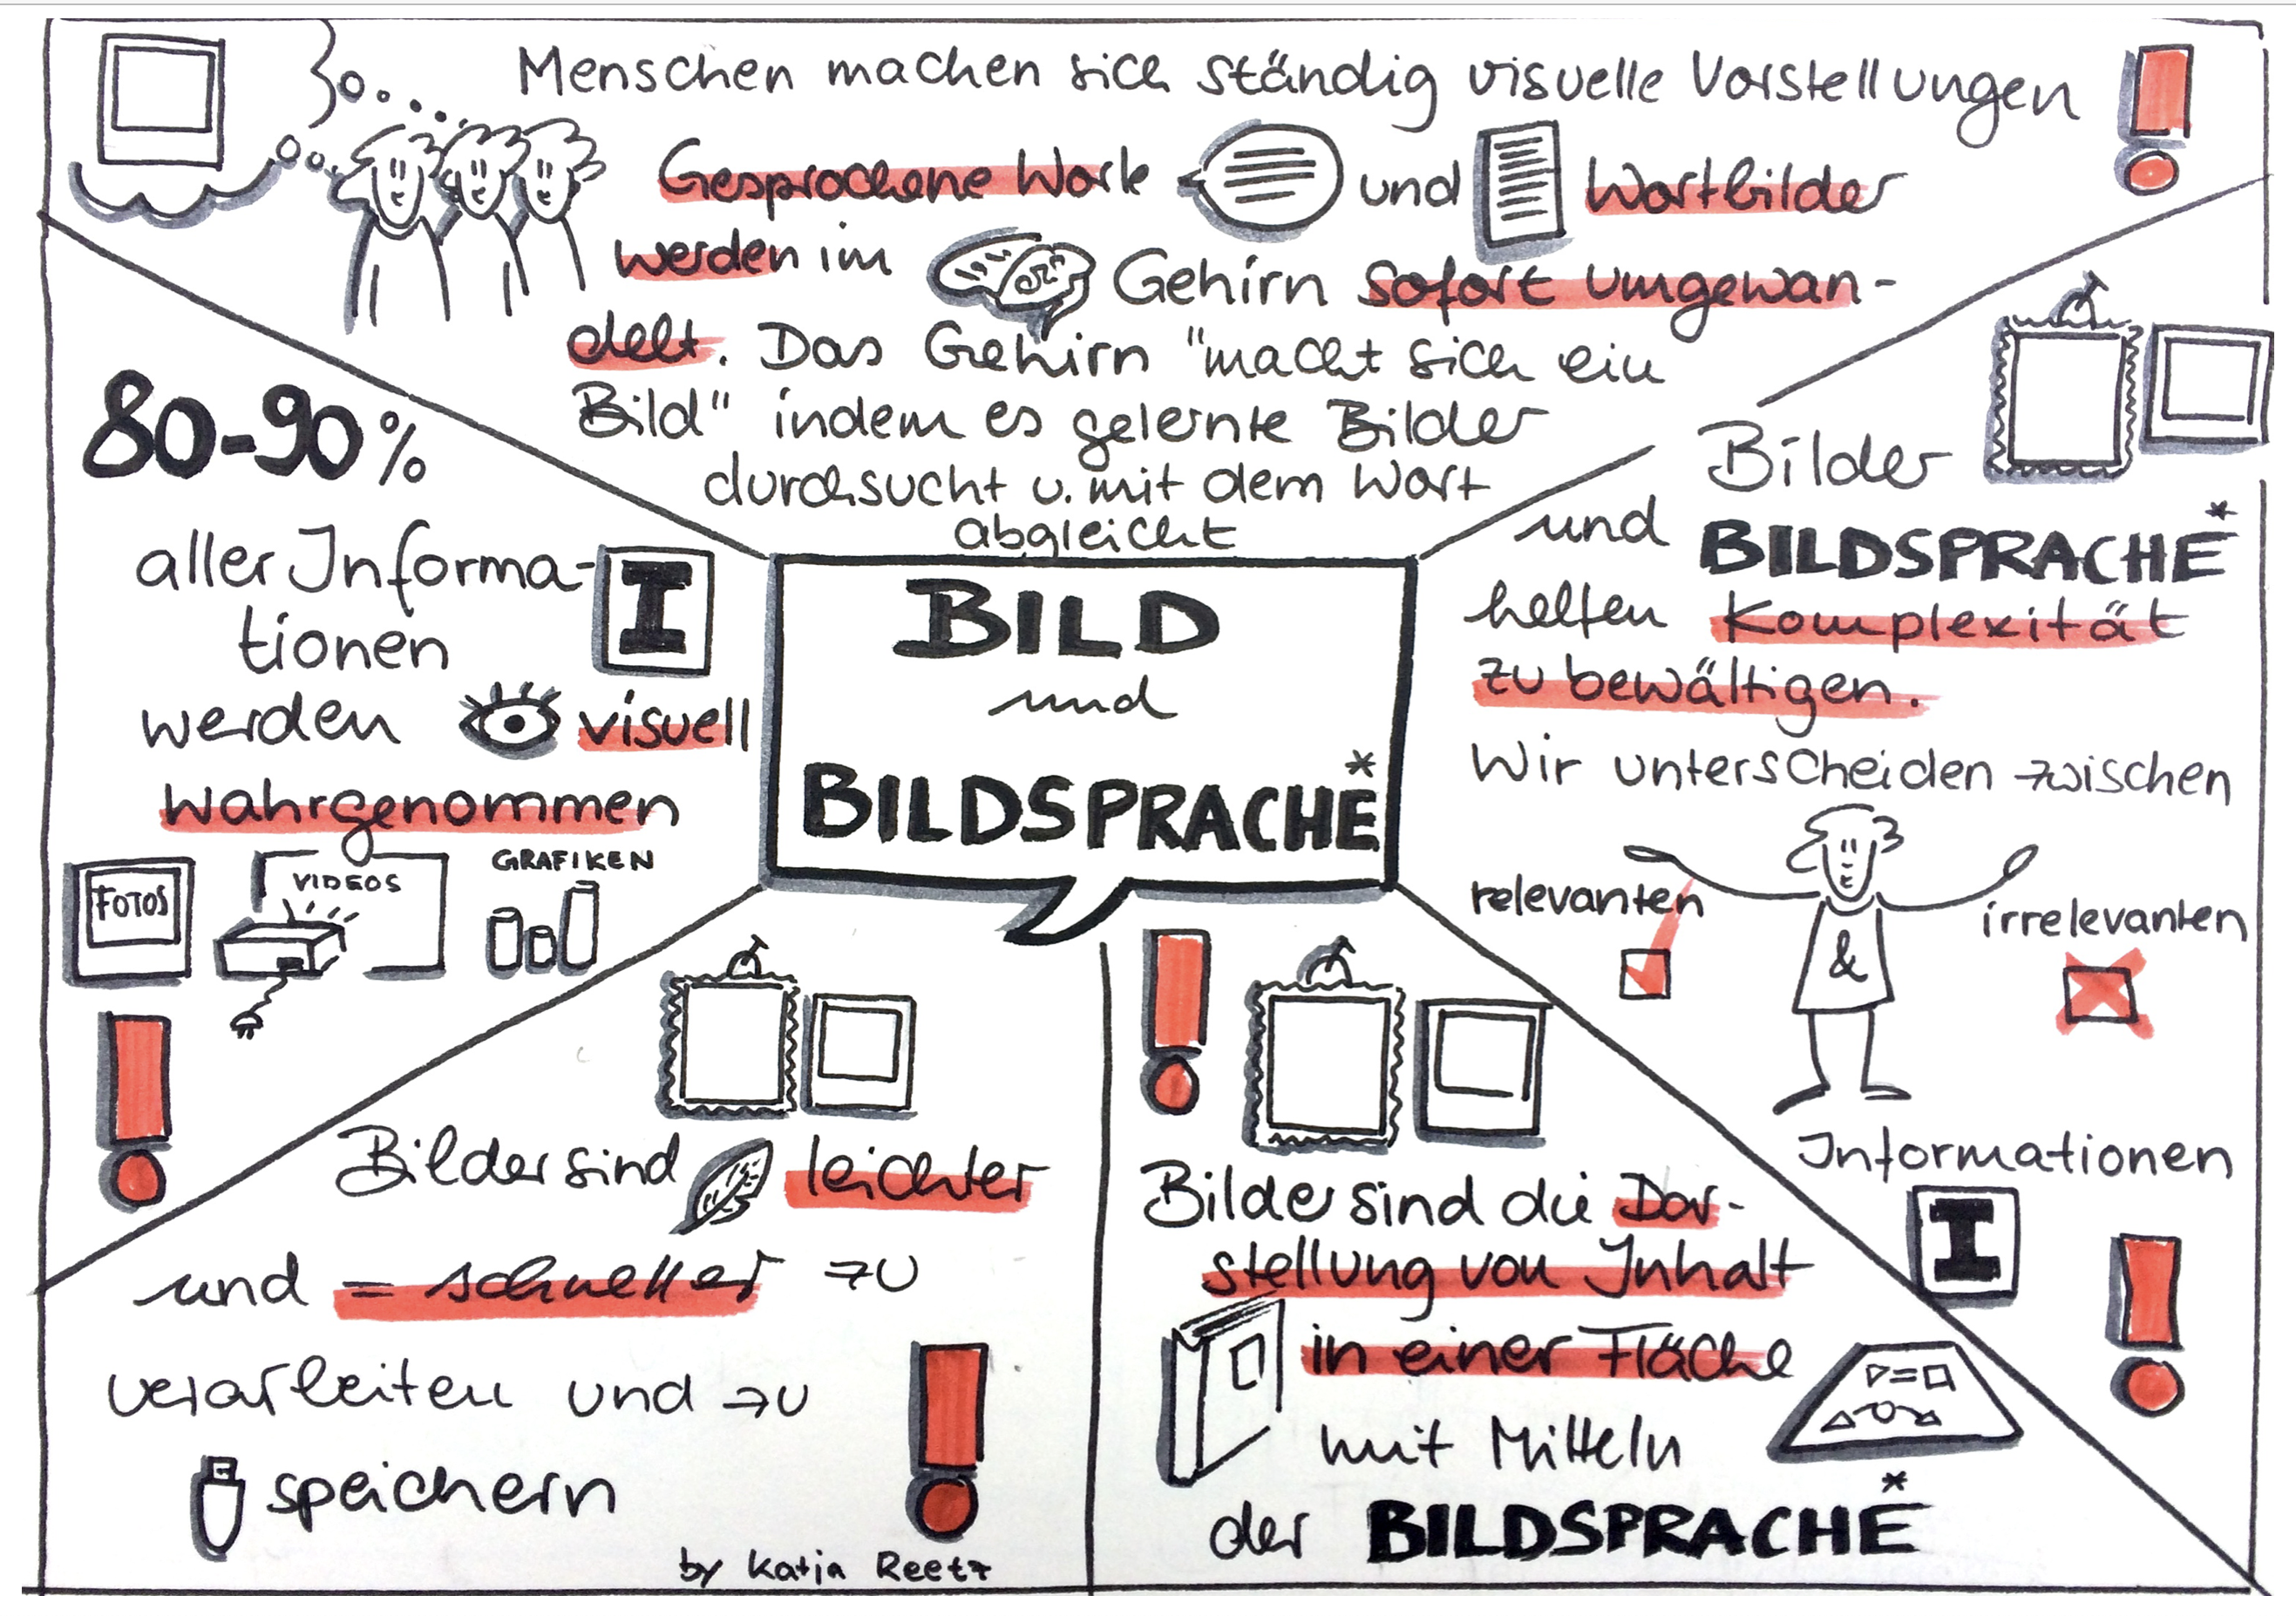 Menschen machen sich ständig visuelle Vorstellungen
Gesprochene Worte und Wortbilder
werden im Gehirn sofort umgewan-
delt. Das Gehirn "macht sich ein
Bild" indem es gelernte Bilder
durchsucht u. mit dem Wort
abgleicht
80-90%
aller Informa-
I
tionen
werden visuell
wahrgenommen
FOTOS
VIDEOS
GRAFIKEN
BILD
und
BILDSPRACHE*
Bilder
und BILDSPRACHE*
helfen Komplexität
zu bewältigen.
Wir unterscheiden zwischen
relevanten
&
irrelevanten
Informationen
I
Bilder sind leichter
und = schneller zu
verarbeiten und zu
speichern
by Katja Reetz
Bilder sind die Dar-
stellung von Inhalt
in einer Fläche
mit Mitteln
der BILDSPRACHE*